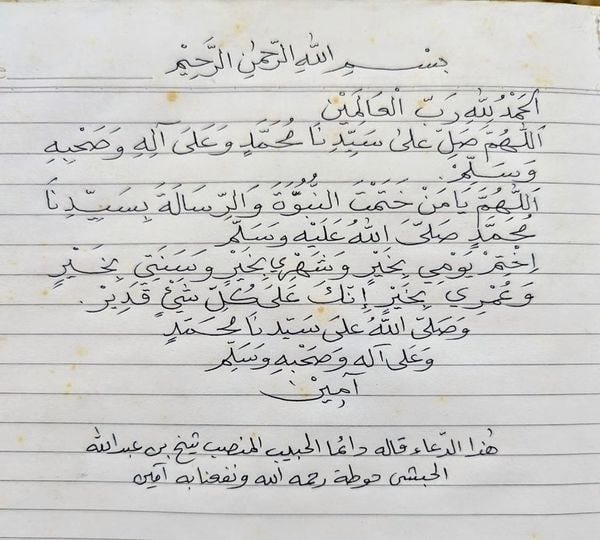 بِسْمِ اللهِ الرَّحْمٰنِ الرَّحِيْمِ
اَلْحَمْدُ لِلّٰهِ رَبِّ الْعَالَمَيْن
اَللّٰهُمَّ صَلِّ عَلىٰ سَيِّدِنَا مُحَمَّدٍ وَعَلىَ آلِهِ وَصَحْبِهِ
وَسَلِّمْ.
اَللّٰهُمَّ يَامَنْ خَتَمْتَ النُّبُوَّةَ وَالرِّسَالَةَ بِسَيِّدِنَا
مُحَمَّدٍ صَلىَّ اللهُ عَلَيْهِ وَسَلَّمَ
اِخْتِمْ يَوْمِي بِخَيْرٍ وَشَهْرِي بِخَيْرٍ وَسَنَتِي بِخَيْرٍ
وَعُمْرِي بِخَيْرٍ إِنَّكَ عَلىَ كُلِّ شَيْئٍ قَدِيْرٌ.
وَصَلىَّ اللهُ عَلىَ سَيِّدِنَا مُحَمَدٍ
وَعَلىَ آلِه وَصَحْبِهِ وَسَلِّم
آمِيْن
هٰذا الدّعاء قاله دائما الحبيب المنصب شيخ بن عبدالله
الحبشى حوطة رحمه الله ونفعنا به آمين